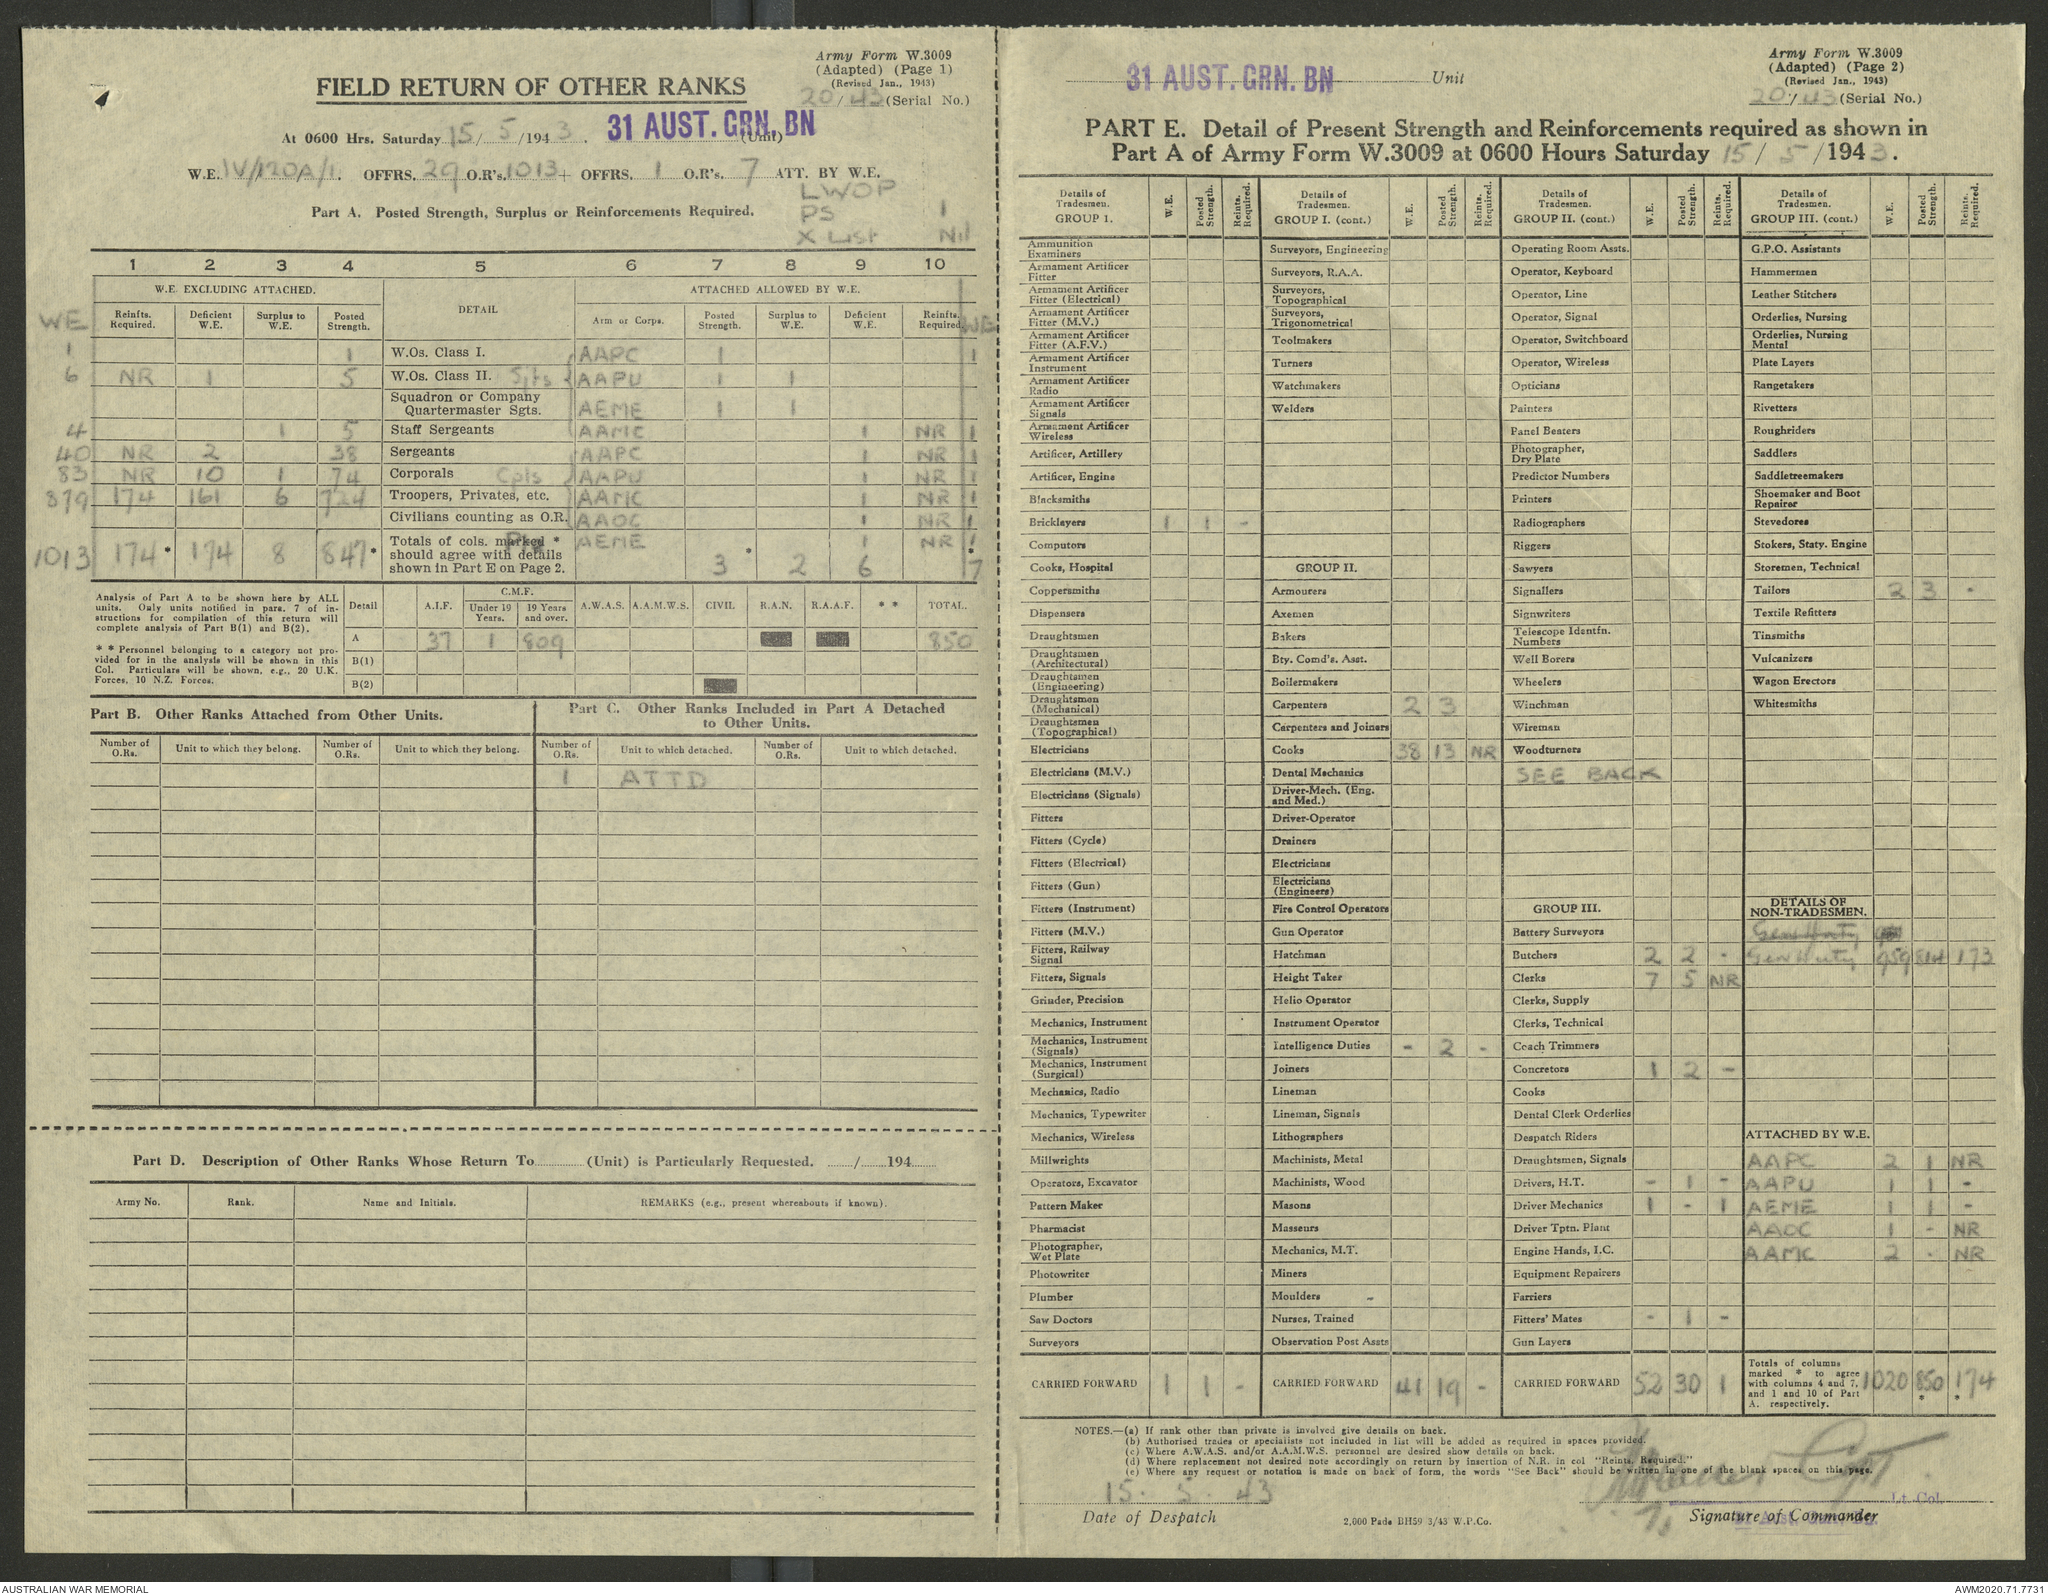 Army Form W.3009
(Adapted) (Page 1)
(Revised Jan., 1943)
20/43 (Serial No.)
FIELD RETURN OF OTHER RANKS
At 0600 Hrs. Saturday 15/5/1943. 31 AUST. GRN. BN (Unit)
W.E. IV/120A/1. OFFRS. 29 O.R's. 1013 + OFFRS. 1 O.R's. 7 ATT. BY W.E.
LWOP
Part A. Posted Strength, Surplus or Reinforcements Required. PS 1
X List Nil
1 2 3 4 5 6 7 8 9 10
W.E. EXCLUDING ATTACHED. DETAIL ATTACHED ALLOWED BY W.E.
WE Reinfts. Required. Deficient W.E. Surplus to W.E. Posted Strength. Arm or Corps. Posted Strength. Surplus to W.E. Deficient W.E. Reinfts. Required. WE
1 1 W.Os. Class I. AAPC 1 1
6 NR 1 5 W.Os. Class II. Sjts AAPU 1 1
Squadron or Company Quartermaster Sgts. AEME 1 1
4 1 5 Staff Sergeants AAMC 1 NR 1
40 NR 2 38 Sergeants AAPC 1 NR 1
83 NR 10 1 74 Corporals Cpls AAPU 1 NR 1
879 174 161 6 724 Troopers, Privates, etc. AAMC 1 NR 1
Civilians counting as O.R. AAOC 1 NR 1
1013 174* 174 8 847* Totals of cols. marked * should agree with details shown in Part E on Page 2. AEME 1 NR 1
3* 2 6 * 7
Analysis of Part A to be shown here by ALL units. Only units notified in para. 7 of instructions for compilation of this return will complete analysis of Part B(1) and B(2).
* * Personnel belonging to a category not provided for in the analysis will be shown in this Col. Particulars will be shown, e.g., 20 U.K. Forces, 10 N.Z. Forces.
Detail A.I.F. C.M.F. Under 19 Years. 19 Years and over. A.W.A.S. A.A.M.W.S. CIVIL R.A.N. R.A.A.F. * * TOTAL.
A 37 1 809 850
B(1)
B(2)
Part B. Other Ranks Attached from Other Units.
Number of O.Rs. Unit to which they belong. Number of O.Rs. Unit to which they belong.
Part C. Other Ranks Included in Part A Detached to Other Units.
Number of O.Rs. Unit to which detached. Number of O.Rs. Unit to which detached.
1 ATTD
Part D. Description of Other Ranks Whose Return To (Unit) is Particularly Requested. / 194
Army No. Rank. Name and Initials. REMARKS (e.g., present whereabouts if known).
31 AUST. GRN. BN Unit
Army Form W.3009
(Adapted) (Page 2)
(Revised Jan., 1943)
20/43 (Serial No.)
PART E. Detail of Present Strength and Reinforcements required as shown in
Part A of Army Form W.3009 at 0600 Hours Saturday 15/5/1943.
Details of Tradesmen. GROUP 1. W.E. Posted Strength. Reints. Required.
Ammunition Examiners
Armament Artificer Fitter
Armament Artificer Fitter (Electrical)
Armament Artificer Fitter (M.V.)
Armament Artificer Fitter (A.F.V.)
Armament Artificer Instrument
Armament Artificer Radio
Armament Artificer Signals
Armament Artificer Wireless
Artificer, Artillery
Artificer, Engine
Blacksmiths
Bricklayers 1 1 -
Computors
Cooks, Hospital
Coppersmiths
Dispensers
Draughtsmen
Draughtsmen (Architectural)
Draughtsmen (Engineering)
Draughtsmen (Mechanical)
Draughtsmen (Topographical)
Electricians
Electricians (M.V.)
Electricians (Signals)
Fitters
Fitters (Cycle)
Fitters (Electrical)
Fitters (Gun)
Fitters (Instrument)
Fitters (M.V.)
Fitters, Railway Signal
Fitters, Signals
Grinder, Precision
Mechanics, Instrument
Mechanics, Instrument (Signals)
Mechanics, Instrument (Surgical)
Mechanics, Radio
Mechanics, Typewriter
Mechanics, Wireless
Millwrights
Operators, Excavator
Pattern Maker
Pharmacist
Photographer, Wet Plate
Photowriter
Plumber
Saw Doctors
Surveyors
CARRIED FORWARD 1 1 -
Details of Tradesmen. GROUP I. (cont.) W.E. Posted Strength. Reints. Required.
Surveyors, Engineering
Surveyors, R.A.A.
Surveyors, Topographical
Surveyors, Trigonometrical
Toolmakers
Turners
Watchmakers
Welders
GROUP II.
Armourers
Axemen
Bakers
Bty. Comd's. Asst.
Boilermakers
Carpenters 2 3
Carpenters and Joiners
Cooks 38 13 NR
Dental Mechanics
Driver-Mech. (Eng. and Med.)
Driver-Operator
Drainers
Electricians
Electricians (Engineers)
Fire Control Operators
Gun Operator
Hatchman
Height Taker
Helio Operator
Instrument Operator
Intelligence Duties - 2 -
Joiners
Lineman
Lineman, Signals
Lithographers
Machinists, Metal
Machinists, Wood
Masons
Masseurs
Mechanics, M.T.
Miners
Moulders
Nurses, Trained
Observation Post Assts
CARRIED FORWARD 41 19 -
Details of Tradesmen. GROUP II. (cont.) W.E. Posted Strength. Reints. Required.
Operating Room Assts.
Operator, Keyboard
Operator, Line
Operator, Signal
Operator, Switchboard
Operator, Wireless
Opticians
Painters
Panel Beaters
Photographer, Dry Plate
Predictor Numbers
Printers
Radiographers
Riggers
Sawyers
Signallers
Signwriters
Telescope Identfn. Numbers
Well Borers
Wheelers
Winchman
Wireman
Woodturners
SEE BACK
GROUP III.
Battery Surveyors
Butchers 2 2 -
Clerks 7 5 NR
Clerks, Supply
Clerks, Technical
Coach Trimmers
Concretors 1 2 -
Cooks
Dental Clerk Orderlies
Despatch Riders
Draughtsmen, Signals
Drivers, H.T. - 1 -
Driver Mechanics 1 - 1
Driver Tptn. Plant
Engine Hands, I.C.
Equipment Repairers
Farriers
Fitters' Mates - 1 -
Gun Layers
CARRIED FORWARD 52 30 1
Details of Tradesmen. GROUP III. (cont.) W.E. Posted Strength. Reints. Required.
G.P.O. Assistants
Hammermen
Leather Stitchers
Orderlies, Nursing
Orderlies, Nursing Mental
Plate Layers
Rangetakers
Rivetters
Roughriders
Saddlers
Saddletreemakers
Shoemaker and Boot Repairer
Stevedores
Stokers, Staty. Engine
Storemen, Technical
Tailors 2 3 -
Textile Refitters
Tinsmiths
Vulcanizers
Wagon Erectors
Whitesmiths
DETAILS OF NON-TRADESMEN.
Gen Duty
Gen Duty 959 814 173
ATTACHED BY W.E.
AAPC 2 1 NR
AAPU 1 1 -
AEME 1 1 -
AAOC 1 - NR
AAMC 2 - NR
Totals of columns marked * to agree with columns 4 and 7, and 1 and 10 of Part A. respectively. 1020 850* 174*
NOTES.—(a) If rank other than private is involved give details on back.
(b) Authorised trades or specialists not included in list will be added as required in spaces provided.
(c) Where A.W.A.S. and/or A.A.M.W.S. personnel are desired show details on back.
(d) Where replacement not desired note accordingly on return by insertion of N.R. in col "Reints. Required."
(e) Where any request or notation is made on back of form, the words "See Back" should be written in one of the blank spaces on this page.
15. 5. 43
Date of Despatch
2,000 Pads BH59 3/43 W.P.Co.
Capt
Lt. Col.
Signature of Commander
AUSTRALIAN WAR MEMORIAL
AWM2020.71.7731